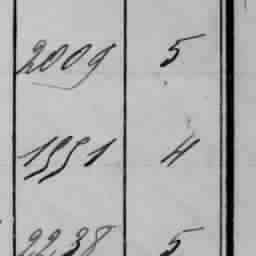 2009 5
1551 4
2238 5